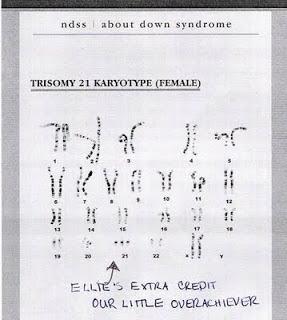 ndss | about down syndrome
TRISOMY 21 KARYOTYPE (FEMALE)
1 2 3 4 5
6 7 8 9 10 11 12
13 14 15 16 17 18
19 20 21 22 x y
ELLIE'S EXTRA CREDIT
OUR LITTLE OVERACHIEVER